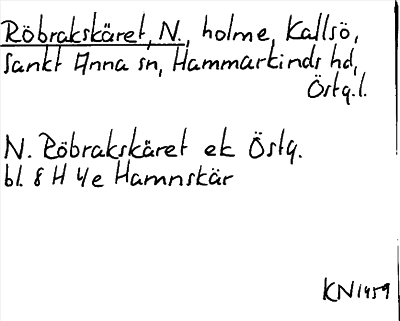 Röbrakskäret, N., holme, Kallsö,
Sankt Anna sn, Hammarkinds hd,
Östg.l.
N. Röbrakskäret ek Östg.
bl. 8 H 4e Hamnskär
KN 1959